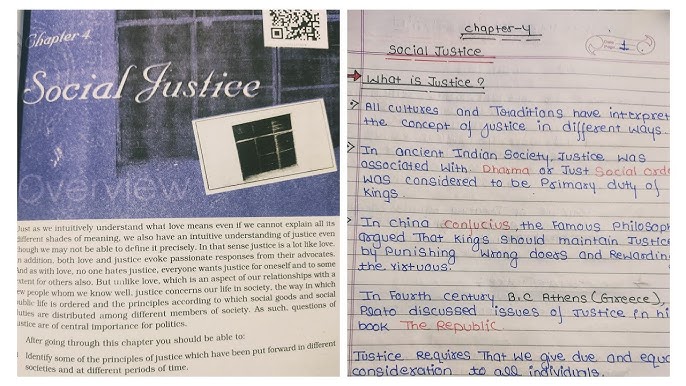 Chapter 4
Social Justice
Overview
Just as we intuitively understand what love means even if we cannot explain all its
different shades of meaning, we also have an intuitive understanding of justice even
though we may not be able to define it precisely. In that sense justice is a lot like love.
In addition, both love and justice evoke passionate responses from their advocates.
And as with love, no one hates justice, everyone wants justice for oneself and to some
extent for others also. But unlike love, which is an aspect of our relationships with a
few people whom we know well, justice concerns our life in society, the way in which
public life is ordered and the principles according to which social goods and social
duties are distributed among different members of society. As such, questions of
justice are of central importance for politics.
After going through this chapter you should be able to:
Identify some of the principles of justice which have been put forward in different
societies and at different periods of time.
chapter-4
1
Social Justice
What is Justice?
All cultures and Traditions have interpret
the concept of justice in different ways.
In ancient Indian Society, Justice was
associated with Dharma or Just Social orde
was considered to be Primary duty of
Kings.
In china Conjucius, the Famous Philosoph
argued That Kings should maintain Justice
by Punishing wrong doers and Rewarding
the virtuous.
In Fourth century B.C Athens (Greece),
Plato discussed issues of Justice in hi
book The Republic
Justice Requires That we give due and equa
consideration to all individuals.